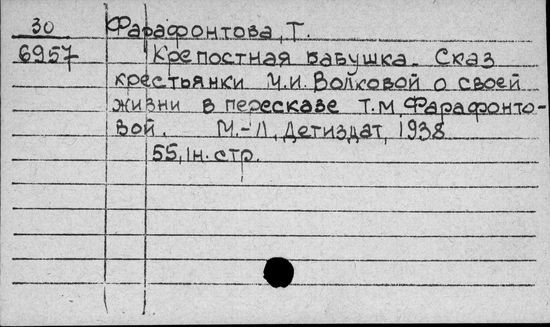 30 Фарафонтова, Т.
6957 Крепостная бабушка. Сказ
крестьянки Ч.И. Волковой о своей
жизни в пересказе Т.М. Фарафонто-
вой. М.-Л., Детиздат, 1938
55, 1н. стр.